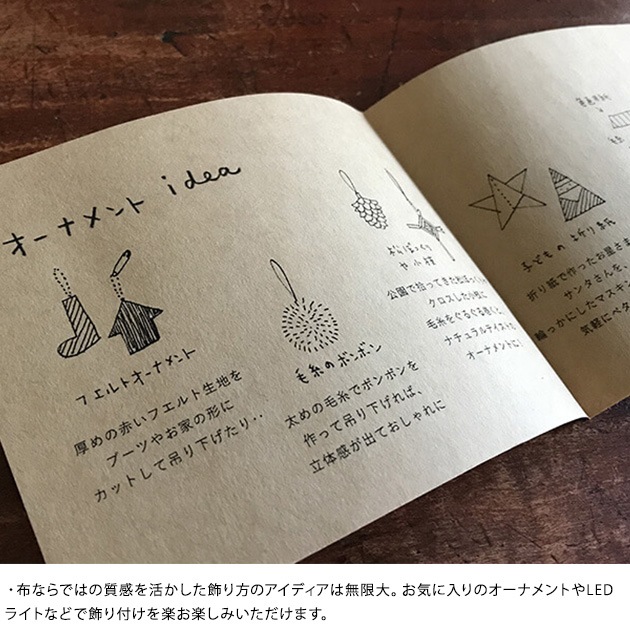 オーナメント idea
フェルトオーナメント
厚めの赤いフエルト生地を
ブーツやお家の形に
カットして吊り下げたり‥
毛糸のボンボン
太めの毛糸でボンボンを
作って吊り下げれば、
立体感が出ておしゃれに
まつぼっくり
や小枝
公園で拾ってきた松ぼっくり
クロスした小枝に
毛糸をぐるぐる巻くと、
ナチュラルテイストの
オーナメントに!
子どもの折り紙
折り紙で作ったお星さま
サンタさんを、
輪っかにしたマスキン
気軽にペタ
・布ならではの質感を活かした飾り方のアイディアは無限大。お気に入りのオーナメントやLED
ライトなどで飾り付けを楽お楽しみいただけます。